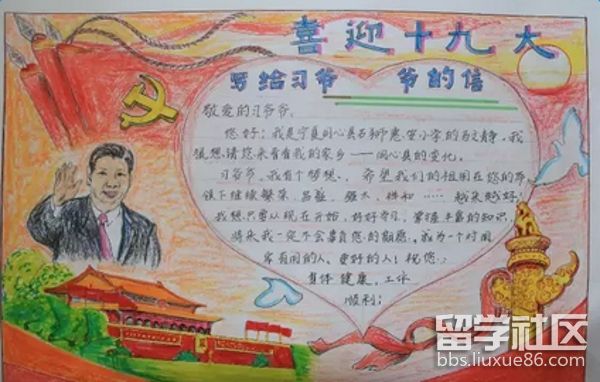 喜迎十九大
写给习爷爷的信
敬爱的习爷爷:
您好!我是宁夏同心县石狮惠安小学的 静,我
很想请您来看看我的家乡——同心县的变化。
习爷爷,我有个梦想,希望我们的祖国在您的带
领下继续繁荣、昌盛、强大、祥和……越来越好,
我想只要从现在开始,好好学习,掌握丰富的知识,
将来我一定不会辜负您的期愿,成为一个对国
家有用的人、更好的人!祝您:
身体健康,工作
顺利!
留学社区
bbs.liuxue86.com